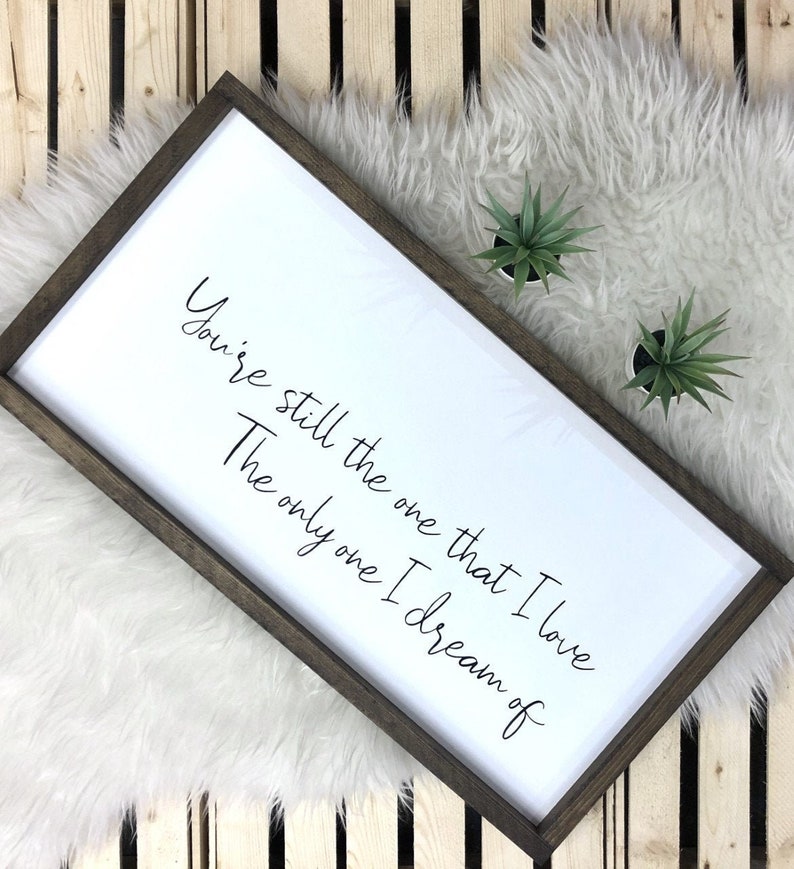 You're still the one that I love
The only one I dream of